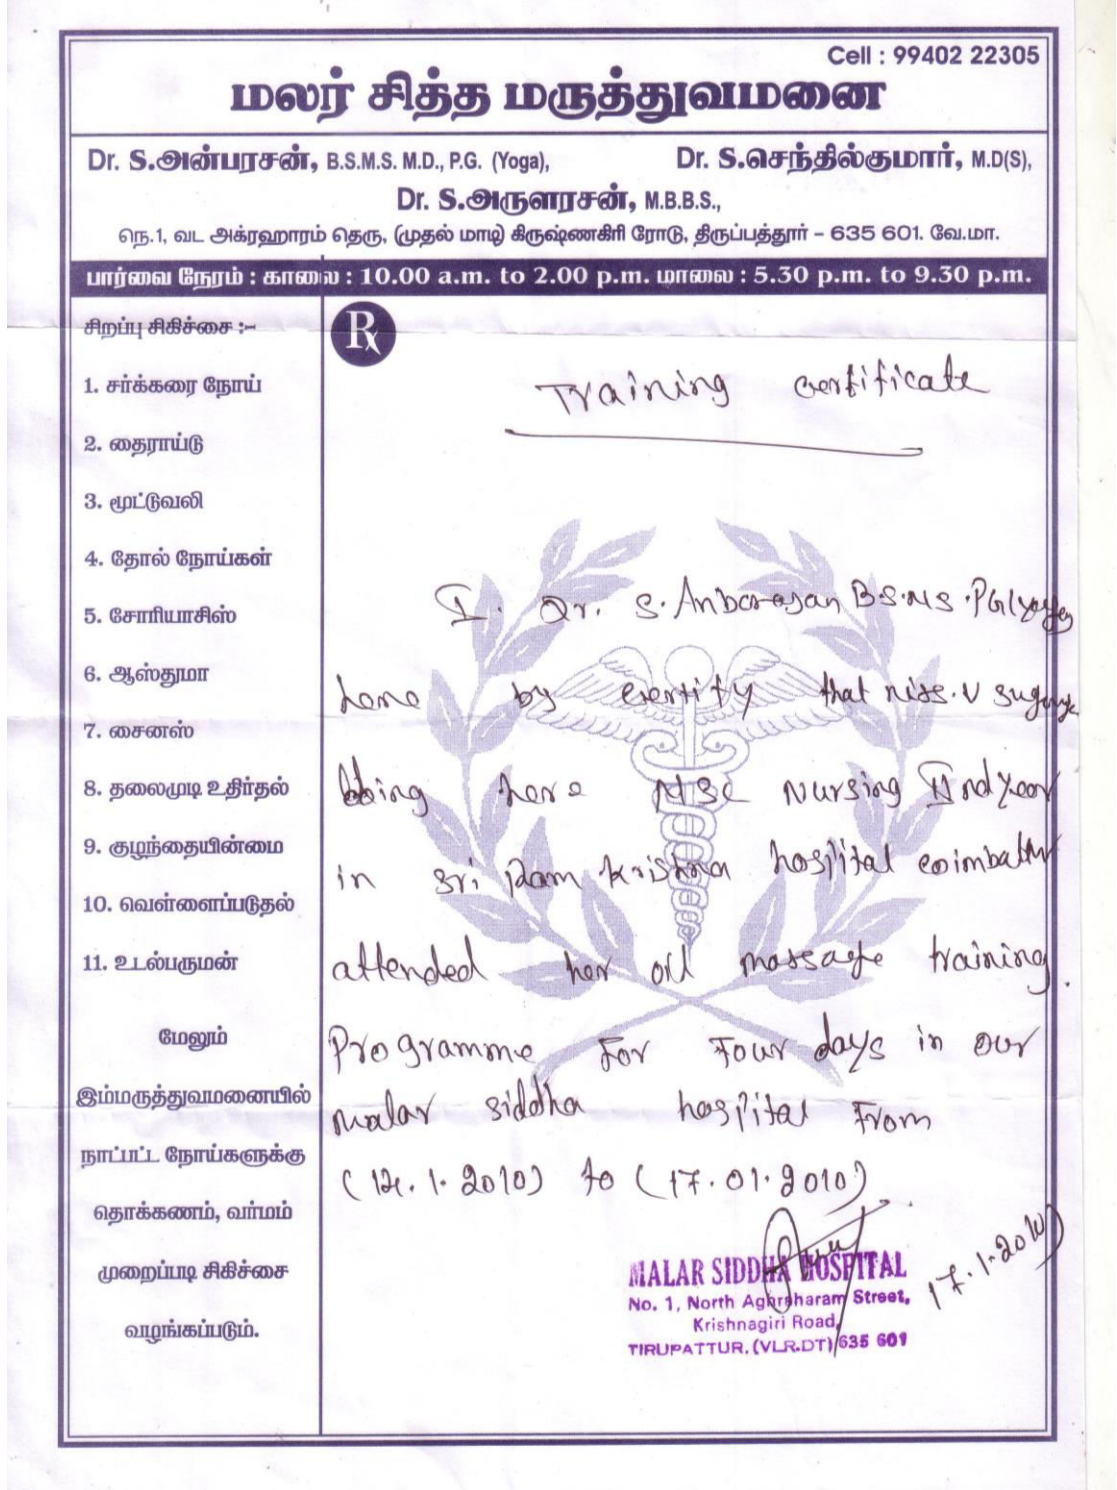 Cell : 99402 22305
மலர் சித்த மருத்துவமனை
Dr. S.அன்பரசன், B.S.M.S. M.D., P.G. (Yoga), Dr. S.செந்தில்குமார், M.D(S),
Dr. S.அருளரசன், M.B.B.S.,
நெ.1, வட அக்ரஹாரம் தெரு, (முதல் மாடி) கிருஷ்ணகிரி ரோடு, திருப்பத்தூர் – 635 601. வே.மா.
பார்வை நேரம் : காலை : 10.00 a.m. to 2.00 p.m. மாலை : 5.30 p.m. to 9.30 p.m.
சிறப்பு சிகிச்சை :-
1. சர்க்கரை நோய்
2. தைராய்டு
3. மூட்டுவலி
4. தோல் நோய்கள்
5. சோரியாசிஸ்
6. ஆஸ்துமா
7. சைனஸ்
8. தலைமுடி உதிர்தல்
9. குழந்தையின்மை
10. வெள்ளைப்படுதல்
11. உடல்பருமன்
மேலும்
இம்மருத்துவமனையில்
நாட்பட்ட நோய்களுக்கு
தொக்கணம், வர்மம்
முறைப்படி சிகிச்சை
வழங்கப்படும்.
Rx
Training certificate
I. Dr. S. Anbarasan B.S.M.S. PG(yoga
here by certify that miss. V
here MSc Nursing IInd year
in sri Ram krishna hospital
attended her oil massage training.
Programme For Four days in our
malar siddha hospital From
(14. 1. 2010) to (17. 01. 2010)
17. 1. 2010
MALAR SIDDHA HOSPITAL
No. 1, North Agraharam Street,
Krishnagiri Road,
TIRUPATTUR. (VLR.DT) 635 601